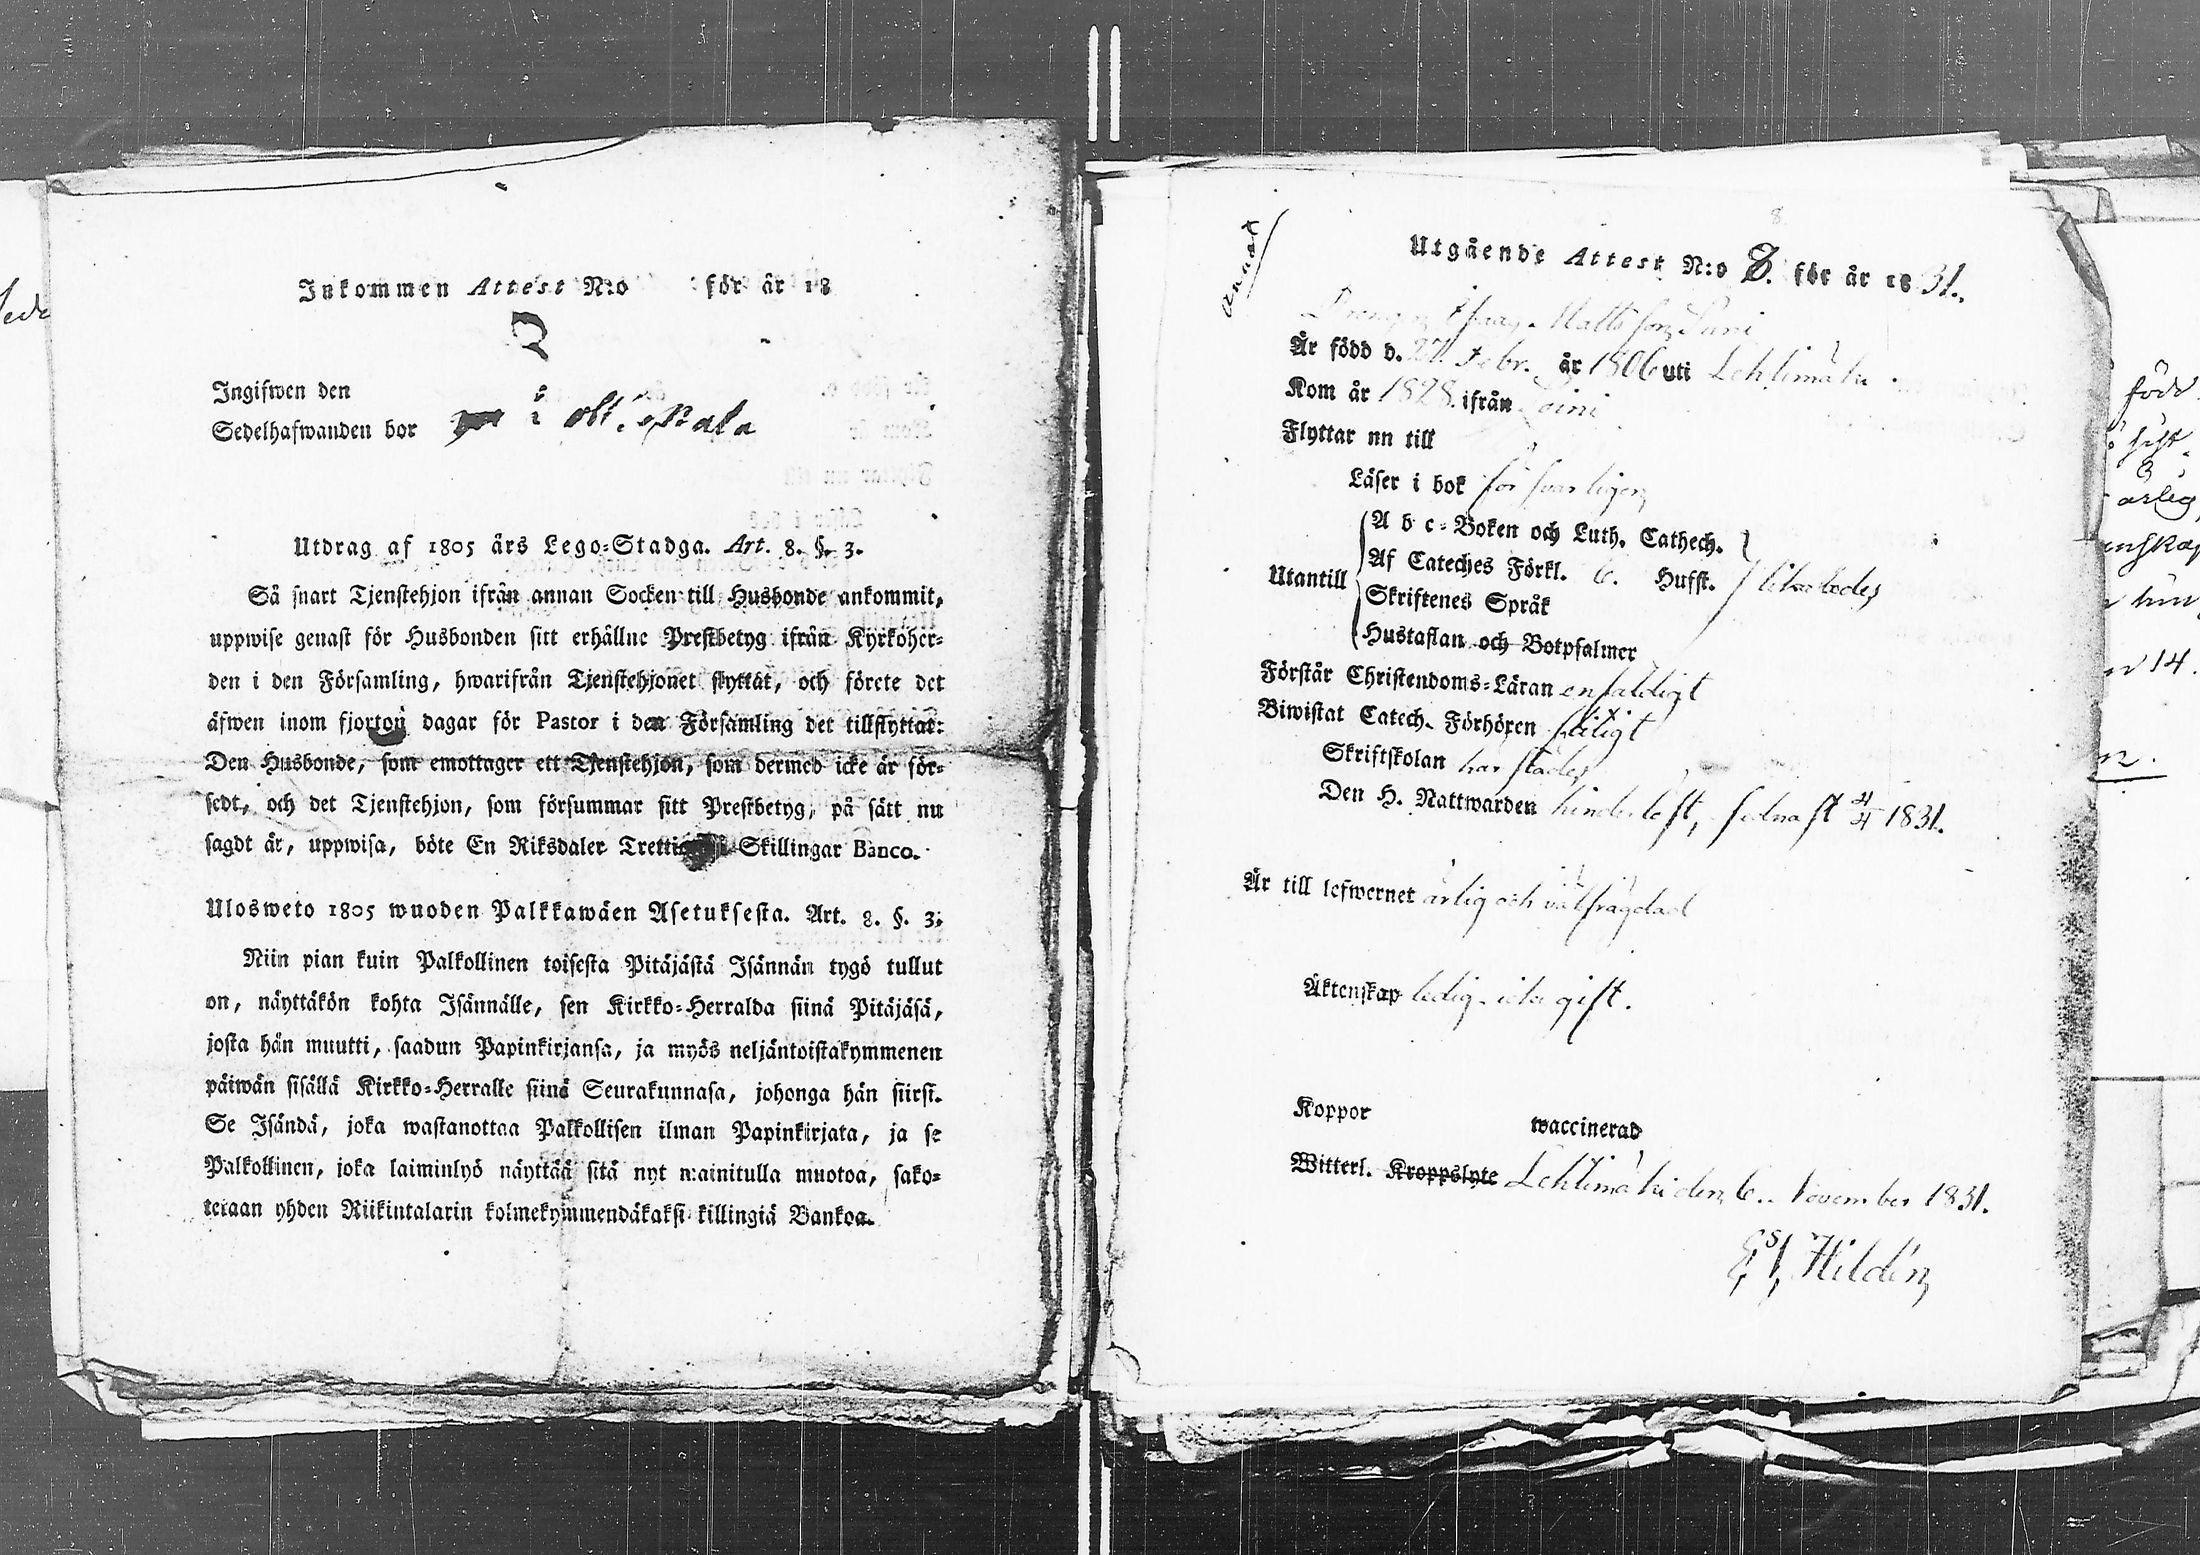 Inkommen Attest N:o för år 18
Ingifwen den
Sedelhafwanden bor i
Utdrag af 1805 års Lego-Stadga. Art. 8. §. 3.
Så snart Tjenstehjon ifrån annan Socken till Husbonde ankommit,
uppwise genast för Husbonden sitt erhållne Prestbetyg ifrån Kyrkoher-
den i den Församling, hwarifrån Tjenstehjonet flyttat, och förete det
äfwen inom fjorton dagar för Pastor i den Församling det tillflyttat:
Den Husbonde, som emottager ett Tjenstehjon, som dermed icke är för-
sedt, och det Tjenstehjon, som försummar sitt Prestbetyg, på sätt nu
sagdt är, uppwisa, böte En Riksdaler Skillingar Banco.
Ulosweto 1805 wuoden Palkkawäen Asetuksesta. Art. 8. §. 3.
Niin pian kuin Palkollinen toisesta Pitäjästä Isännän tygö tullut
on, näyttäkön kohta Isännälle, sen Kirkko-Herralda siinä Pitäjäsä,
josta hän muutti, saadun Papinkirjansa, ja myös neljäntoistakymmenen
päiwän sisällä Kirkko-Herralle siinä Seurakunnasa, johonga hän siirsi.
Se Isändä, joka wastanottaa Palkollisen ilman Papinkirjata, ja se
Palkollinen, joka laiminlyö näyttää sitä nyt mainitulla muotoa, sako-
tetaan yhden Riikintalarin kolmekymmendäkaksi killingiä Bankoa.
annat
Utgående Attest N:o 8. för år 1831.
Drengen Isaac Mattsson Suni
Är född d. 27. Febr. år 1806 uti Lehtimäki
Kom år 1828. ifrån Soini
Flyttar nu till
Läser i bok försvarligen
A b c-Boken och Luth. Cathech.
Utantill Af Cateches Förkl. 6. Hufst. likaledes
Skriftenes Språk
Hustaflan och Botpsalmer
Förstår Christendoms-Läran enfaldigt
Biwistat Catech. Förhören flitigt
Skriftskolan härstädes
Den H. Nattwarden hinderlöst, sednast 1831.
Är till lefwernet ärlig och välfrägdad
Äktenskap ledig icke gift.
Koppor waccinerad
Witterl. Kroppslyte Lehtimäki den 6. November 1831.
Hildén